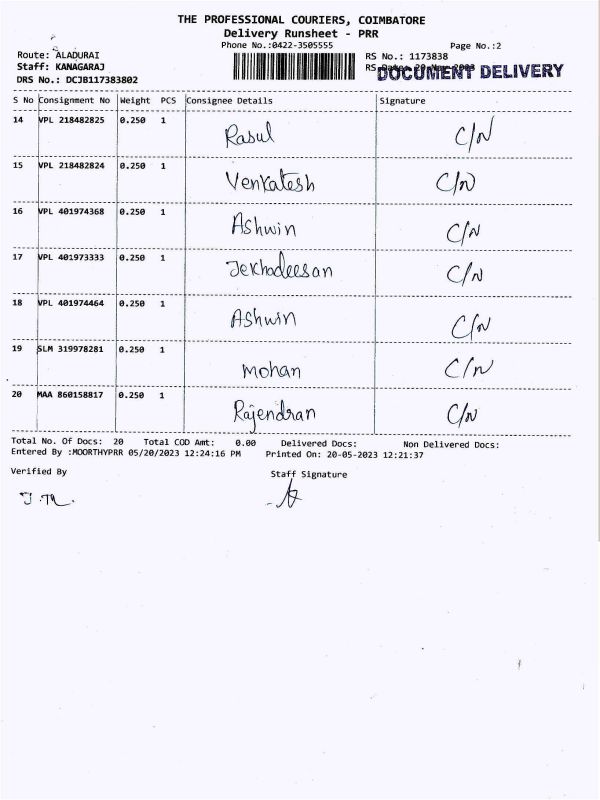 THE PROFESSIONAL COURIERS, COIMBATORE
Delivery Runsheet - PRR
Phone No.:0422-3505555 Page No.:2
Route: ALADURAI RS No.: 1173838
Staff: KANAGARAJ RS Date: 20 May 2023
DOCUMENT DELIVERY
DRS No.: DCJB117383802
S No Consignment No Weight PCS Consignee Details Signature
14 VPL 218482825 0.250 1 Rasul C/N
15 VPL 218482824 0.250 1 Venkatesh C/N
16 VPL 401974368 0.250 1 Ashwin C/N
17 VPL 401973333 0.250 1 Jekhadeesan C/N
18 VPL 401974464 0.250 1 Ashwin C/N
19 SLM 319978281 0.250 1 Mohan C/N
20 MAA 860158817 0.250 1 Rajendran C/N
Total No. Of Docs: 20 Total COD Amt: 0.00 Delivered Docs: Non Delivered Docs:
Entered By :MOORTHYPRR 05/20/2023 12:24:16 PM Printed On: 20-05-2023 12:21:37
Verified By Staff Signature